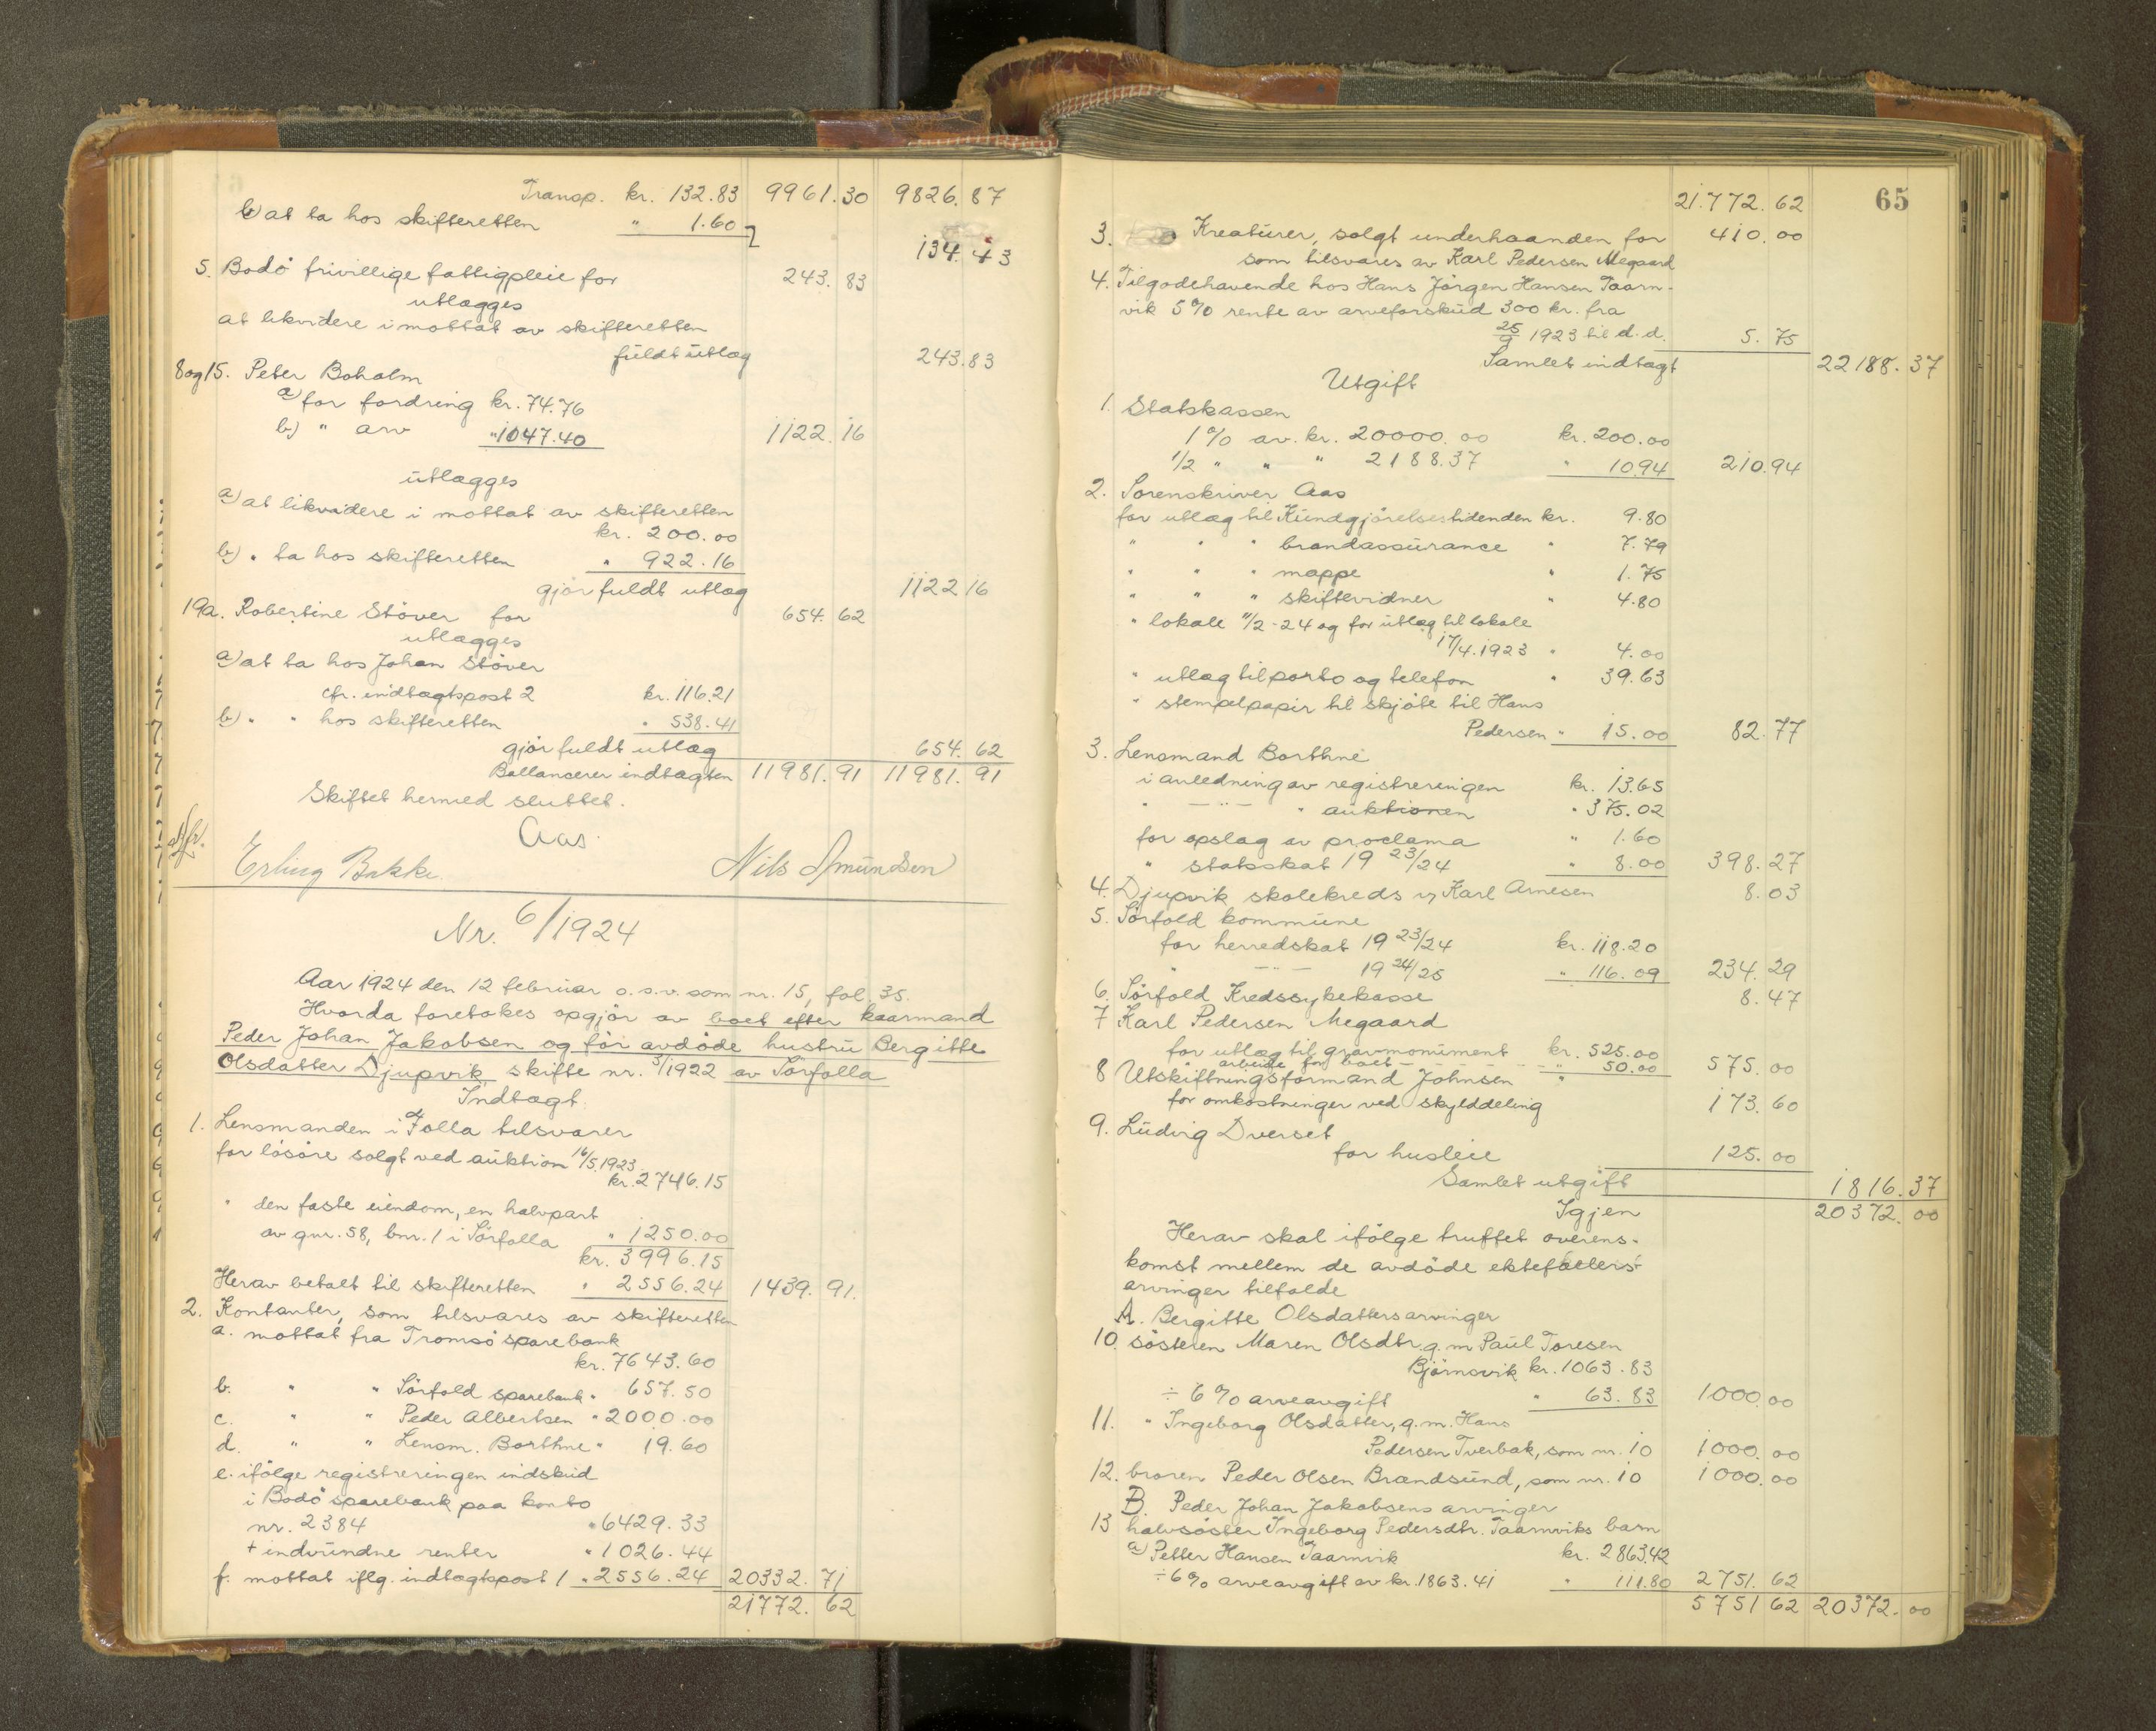 Transp. kr. 132.83 9961.30 9826.87
b) at ta hos skifteretten " 1.60
134.43
5. Bodö frivillige fattigpleie for 243.83
utlægges
at likvidere i mottat av skifteretten
fuldt utlæg 243.83
8 og 15. Peter Boholm
a) for fordring kr. 74.76
b) " arv " 1047.40 1122.16
utlægges
a) at likvidere i mottat av skifteretten
kr. 200.00
b) " ta hos skifteretten " 922.16
gjör fuldt utlæg 1122 16
19a. Robertine Stöver for 654.62
utlægges
a) at ta hos Johan Stöver
cfr. indtægtspost 2 kr. 116.21
b) " " hos skifteretten " 538.41
gjör fuldt utlæg 654.62
Ballancerer indtægten 11981.91 11981.91
Skiftet hermed sluttet.
Aas.
Erling Bakke. Nils Amundsen
Nr. 6/1924
Aar 1924 den 12 februar o.s.v. som nr. 15, fol. 35.
Hvorda foretokes opgjör av boet efter kaarmand
Peder Johan Jakobsen og för avdöde hustru Bergitte
Olsdatter Djupvik, skifte nr. 3/1922 av Sörfolla
Indtægt.
1. Lensmanden i Folla tilsvarer
for lösöre solgt ved auktion 16/5.1923
kr. 2746.15
" den faste eiendom, en halvpart
av gnr. 58, bnr. 1 i Sörfolla " 1250.00
kr. 3996.15
Herav betalt til skifteretten " 2556.24 1439.91.
2. Kontanter, som tilsvares av skifteretten
a. mottat fra Tromsö sparebank
kr. 7643.60
b. " " Sörfold sparebank " 657.50
c. " " Peder Albertsen " 2000.00
d. " " Lensm. Borthne " 19.60
e. ifölge registreringen indskud
i Bodö sparebank paa konto
nr. 2384 " 6429.33
+ indvundne renter " 1026.44
f. mottat iflg. indtægtspost 1 " 2556.24 20332.71
21772.62
65
21.772.62
3. Kreaturer, solgt underhaanden for 410.00
som tilsvares av Karl Pedersen Megaard
4. Tilgodehavende hos Hans Jörgen Hansen Taarn-
vik 5% rente av arveforskud 300 kr. fra
25/9 1923 til d.d. 5.75
Samlet indtægt 22188.37
Utgift
1. Statskassen
1% av. kr. 20000.00 kr. 200.00
1/2 " " " 2188.37 " 10.94 210.94
2. Sorenskriver Aas
for utlæg til Kundgjörelsestidenden kr. 9.80
" " " brandassurance " 7.79
" " " mappe " 1.75
" " " skiftevidner " 4.80
" lokale 11/2-24 og for utlæg til lokale
17/4.1923 " 4.00
" utlæg til porto og telefon " 39.63
" stempelpapir til skjöte til Hans
Pedersen " 15.00 82.77
3. Lensmand Borthne
i anledning av registreringen kr. 13.65
" — " — " auktionen " 375.02
for opslag av proclama " 1.60
" statsskat 19 23/24 " 8.00 398.27
4. Djupvik skolekreds v/ Karl Arnesen 8.03
5. Sörfold kommune
for herredskat 19 23/24 kr. 118.20
" — " — 19 24/25 " 116.09 234.29
6. Sörfold Kredssykekasse 8.47
7 Karl Pedersen Megaard
for utlæg til gravmonument kr. 525.00
" arbeide for boet — " 50.00 575.00
8 Utskiftningsformand Johnsen
for omkostninger ved skylddeling 173.60
9. Ludvig Dverset
for husleie 125.00
Samlet utgift 1816.37
Igjen 20372.00
Herav skal ifölge truffet overens-
komst mellem de avdöde ektefællers
arvinger tilfalde
A. Bergitte Olsdatters arvinger
10. sösteren Maren Olsdtr. g.m. Paul Toresen
Björnsvik kr. 1063.83
÷ 6% arveavgift " 63.83 1000.00
11. " Ingeborg Olsdatter, g.m. Hans
Pedersen Tverbak, som nr. 10 1000.00
12. broren Peder Olsen Brændsund, som nr. 10 1000.00
B. Peder Johan Jakobsens arvinger
13 halvsöster Ingeborg Pedersdtr. Taarnviks barn
a) Petter Hansen Taarnvik kr. 2863.42
÷ 6% arveavgift av kr. 1863.41 " 111.80 2751.62
5751 62 20372.00